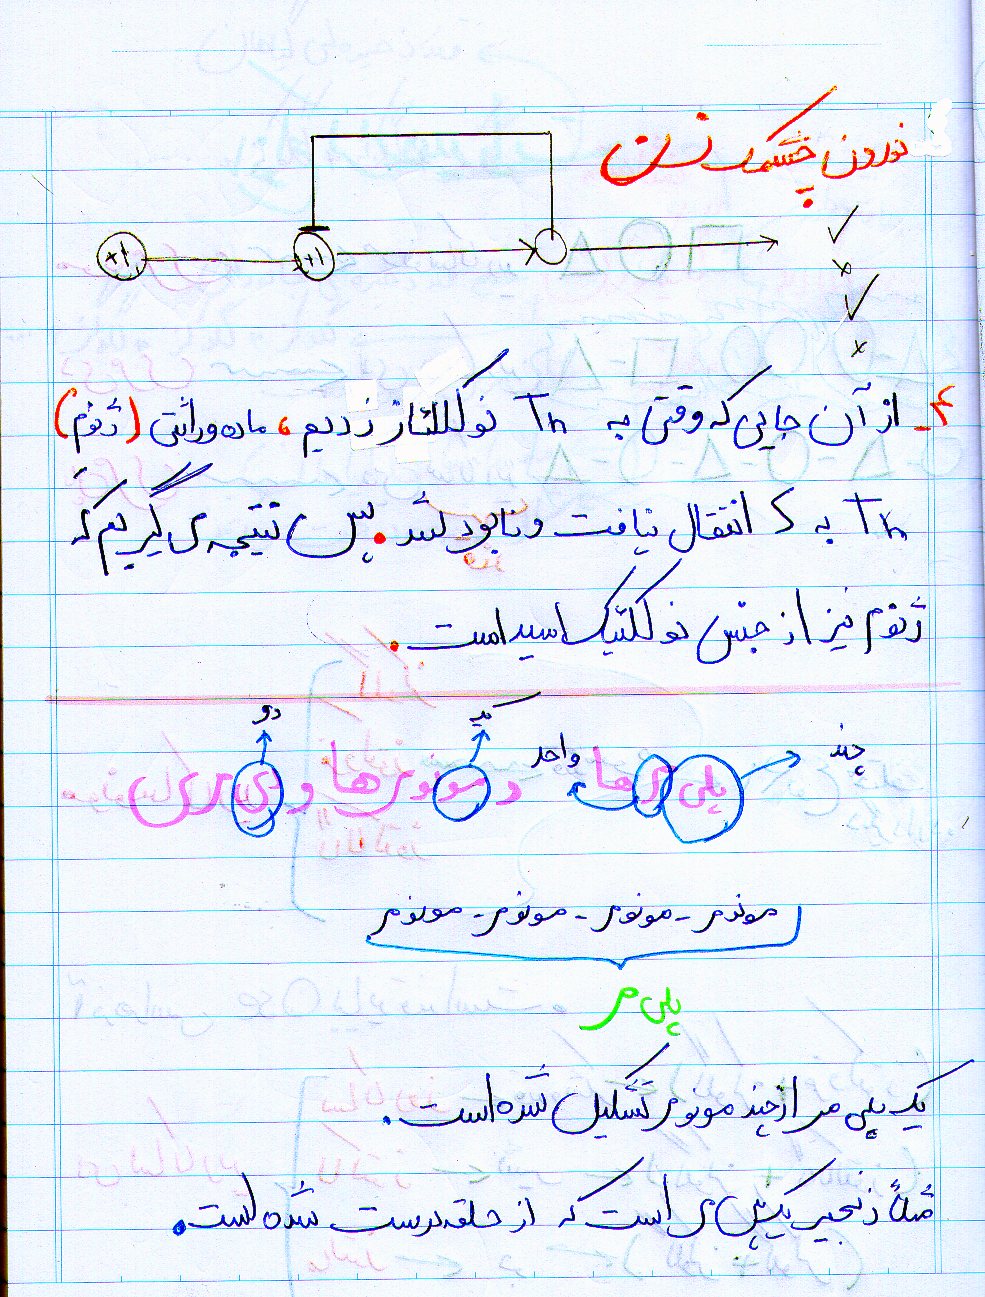 نورون چشمک زن
+1 +1
۴_ از آن جایی که وقتی به Tn نوکلئاز زدیم، ماده وراثتی (ژنوم)
Tn به S انتقال نیافت و نابود شد. پس نتیجه می گیریم که
ژنوم نیز از جنس نوکلئیک اسید است.
چند واحد یک دو
پلی مرها و مونومرها و دی مری
مونومر - مونومر - مونومر - مونومر
پلی مر
یک پلی مر از چند مونومر تشکیل شده است.
مثلاً زنجیر یک پلی مر است که از حلقه درست شده است.